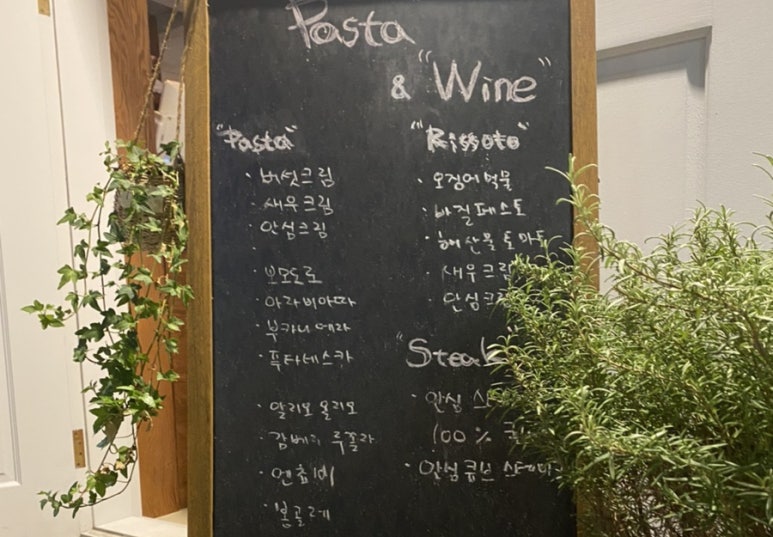 Pasta
& "Wine"
"Pasta"
· 버섯크림
· 새우크림
· 안심크림
· 뽀모도로
· 아라비아따
· 부카니에라
· 푸타네스카
· 알리오올리오
· 감베리 루꼴라
· 엔쵸비
· 봉골레
"Rissoto"
· 오징어먹물
· 바질페스토
· 해산물토마토
· 새우크림
· 안심크
"Steak
· 안심 스
100%
· 안심큐브 스테이크